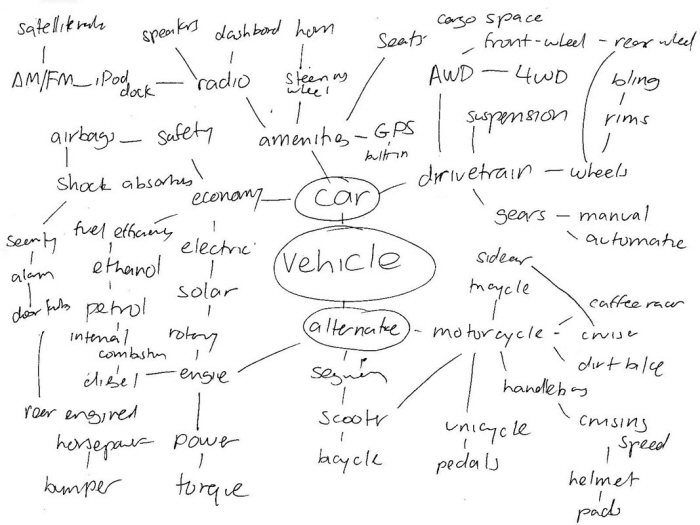 cargo space
speakers dashbord horn
front-wheel - rear wheel
Seats
AM/FM iPod dock radio
steering wheel
AWD - 4WD
bling
rims
suspension
airbags - safety
amenities - GPS
built in
drivetrain - wheels
shock absorbers
economy
car
gears - manual
automatic
security
fuel efficiency
electric
vehicle
sidecar
alarm
ethanol
solar
tricycle
petrol
caffee racer
internal combustion
rotary
alternate - motorcycle
cruiser
dirt bike
diesel - engine
segway
handlebars
rear engined
scooter
unicycle
cruising speed
horsepower
power
bicycle
pedals
helmet
bumper
torque
pads